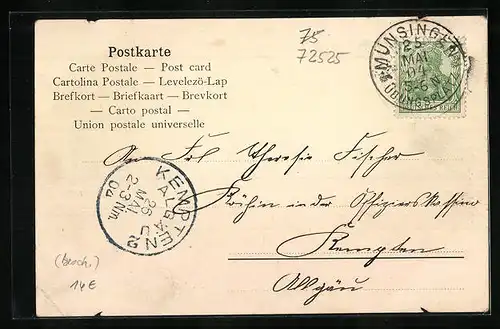 75
72525
MÜNSINGEN
25
MAI
04
5-6 N
Postkarte
Carte Postale — Post card
Cartolina Postale — Levelező-Lap
Brefkort — Briefkaart — Brevkort
— Carto postal —
Union postale universelle
An Frl Therese Fischer
Köchin in der Offizierskasino
Kempten
Allgäu
KEMPTEN 2
ALGÄU
26
MAI
2-3 Nm.
04
(besch.)
14 €